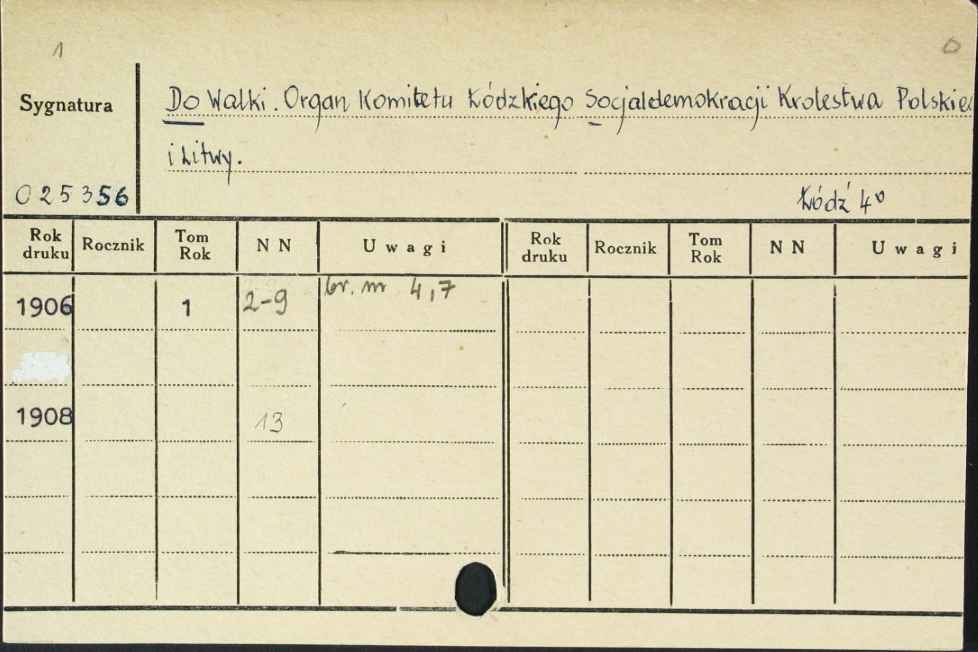 1
0
Sygnatura
Do Walki. Organ Komitetu Łódzkiego Socjaldemokracji Krolestwa Polskie
i Litwy.
025356
Łódź 4⁰
Rok druku Rocznik Tom Rok NN Uwagi Rok druku Rocznik Tom Rok NN Uwagi
1906 1 2-9 br. nr 4,7
1908 13